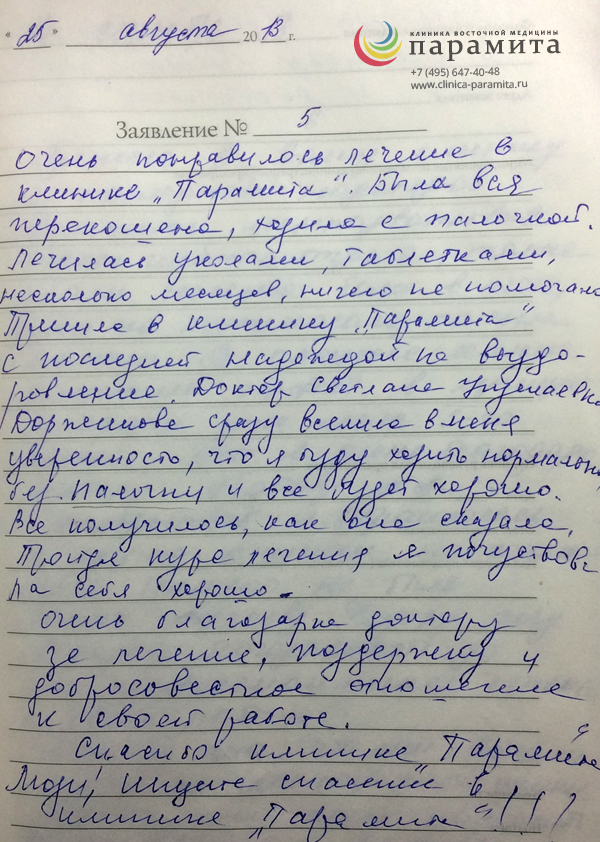 "25" августа 2013 г.
КЛИНИКА ВОСТОЧНОЙ МЕДИЦИНЫ
ПАРАМИТА
+7 (495) 647-40-48
www.clinica-paramita.ru
Заявление № 5
Очень понравилось лечение в
клинике „Парамита". Была вся
перекошена, ходила с палочкой.
Лечилась уколами, таблетками,
несколько месяцев, ничего не помогало
Пришла в клинику „Парамита"
с последней надеждой на выздо-
ровление. Доктор Светлана
Доржинова сразу вселила в меня
уверенность, что я буду ходить нормально
без палочки и все будет хорошо.
Все получилось, как она сказала,
Пройдя курс лечения я почуствова
ла себя хорошо.
Очень благодарна доктору
за лечение, поддержку и
добросовестное отношение
к своей работе.
Спасибо клинике „Парамита"
Люди! Ищите спасение в
клинике „Парамита"!!!